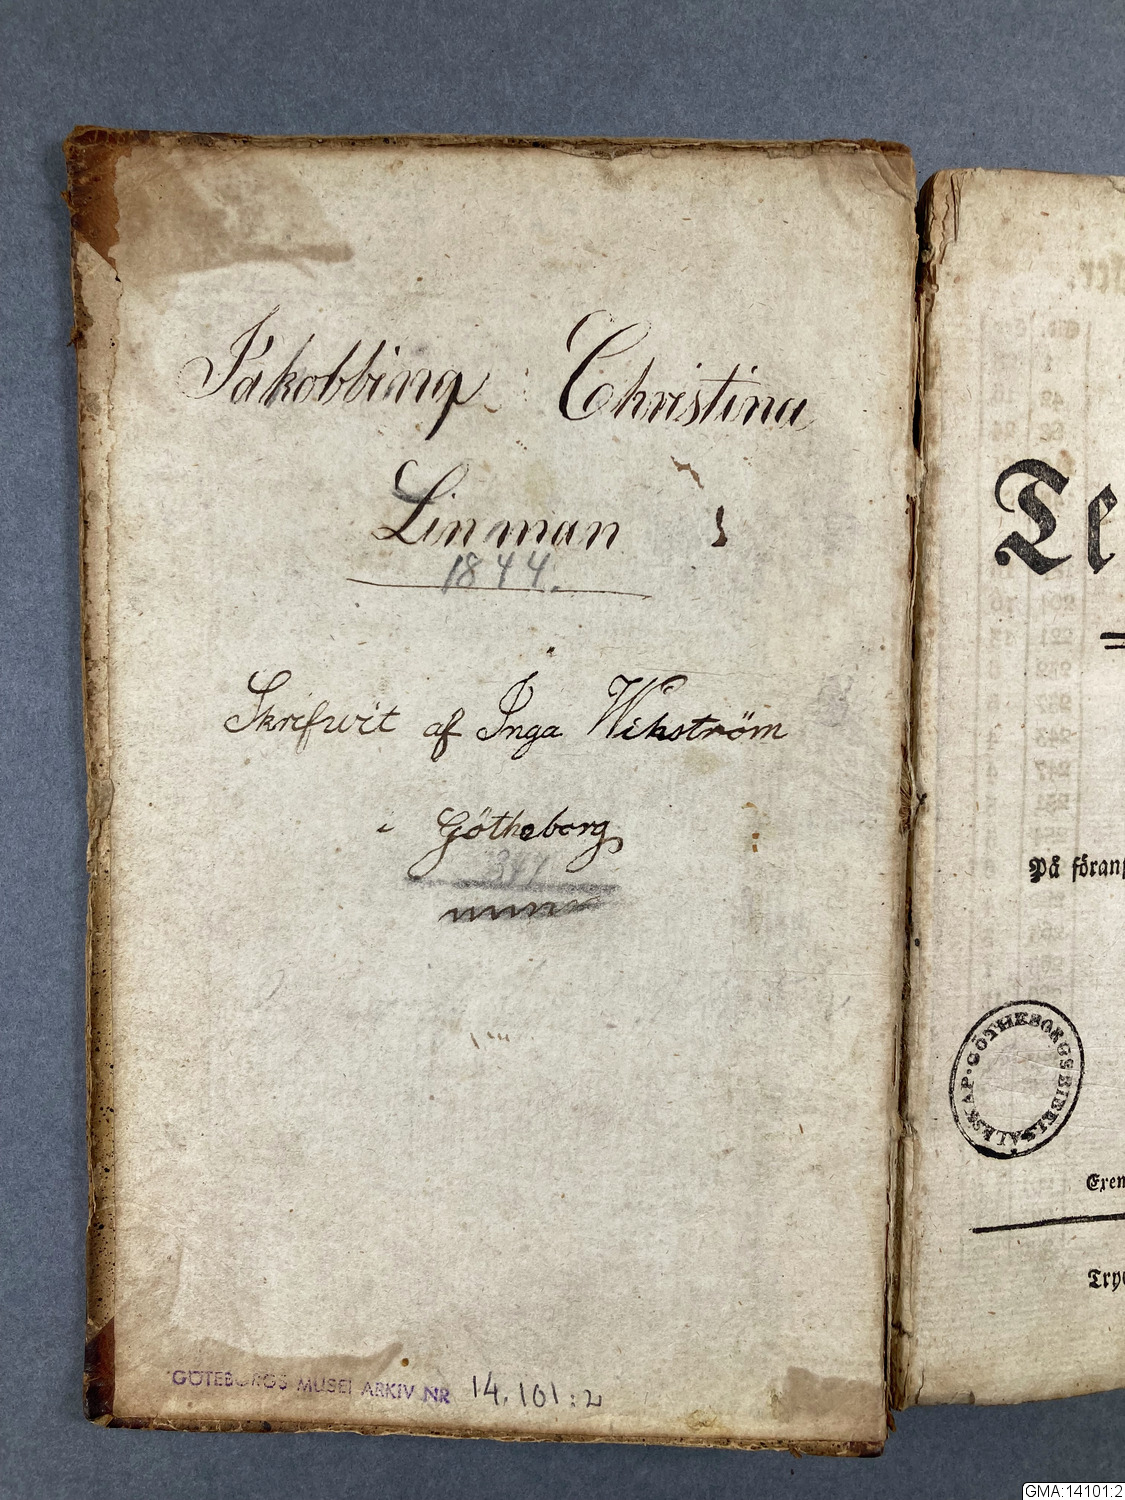 Jakobbina Christina
Linman
1844.
Skrifwit af Inga Wikström
i Götheborg
GÖTEBORGS MUSEI ARKIV NR 14.101:2
Te
På föran
GÖTHEBORGS BIBELSÄLLSKAP
Exem
Tryc
GMA:14101:2